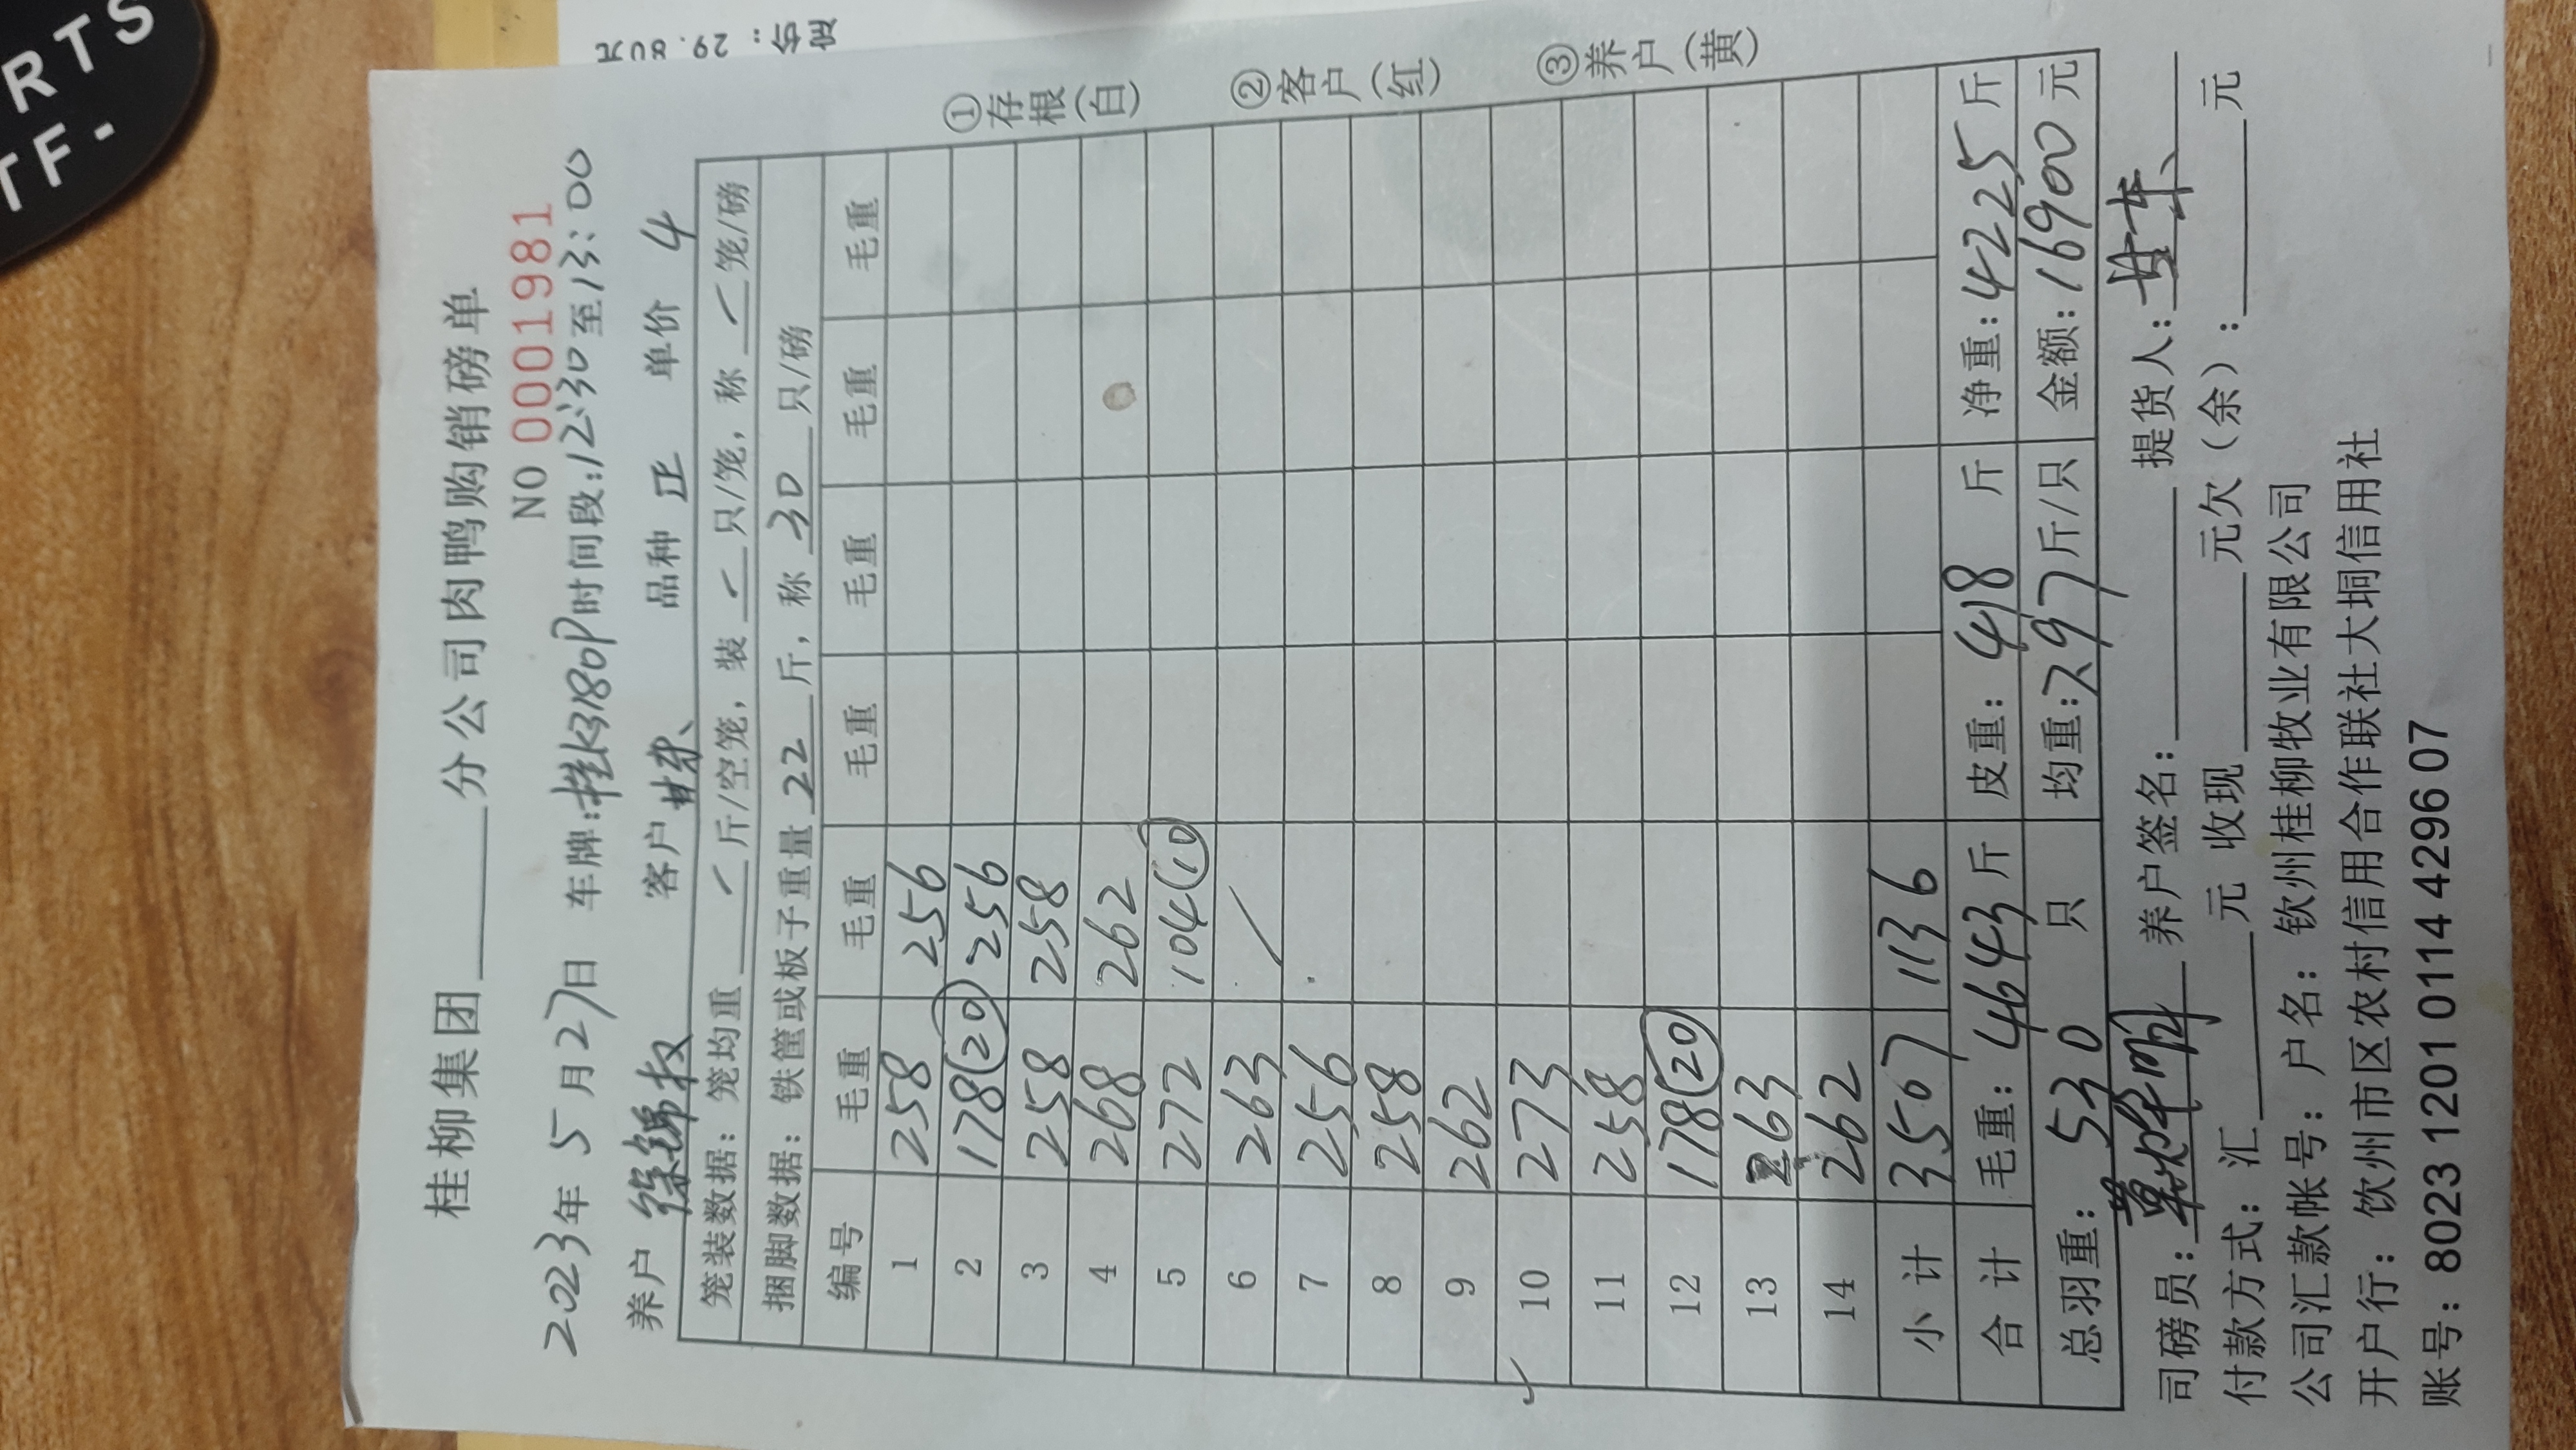 RTS
TF-
29.80元
桂柳集团 分公司肉鸭购销磅单
NO 0001981
2023年 5月27日 车牌:桂K3180P时间段:12:30至13:00
养户 客户 品种 正 单价 4
笼装数据: 笼均重 斤/空笼, 装 只/笼, 称 笼/磅
捆脚数据: 铁筐或板子重量 22 斤, 称 30 只/磅
编号 毛重 毛重 毛重 毛重 毛重 毛重
1 258 256
2 178(20) 256
3 258 258
4 268 262
5 272 104(10)
6 263
7 256
8 258
9 262
10 273
11 258
12 178(20)
13 263
14 262
小计 3507 1136
合计 毛重: 4643 斤 皮重: 418 斤 净重: 4225 斤
总羽重: 530 只 均重: 7.97 斤/只 金额: 16900 元
①存根(白) ②客户(红) ③养户(黄)
司磅员: 养户签名: 提货人:
付款方式: 汇 元 收现 元欠(余): 元
公司汇款帐号: 户名: 钦州桂柳牧业有限公司
开户行: 钦州市区农村信用合作联社大垌信用社
账号: 8023 1201 0114 4296 07